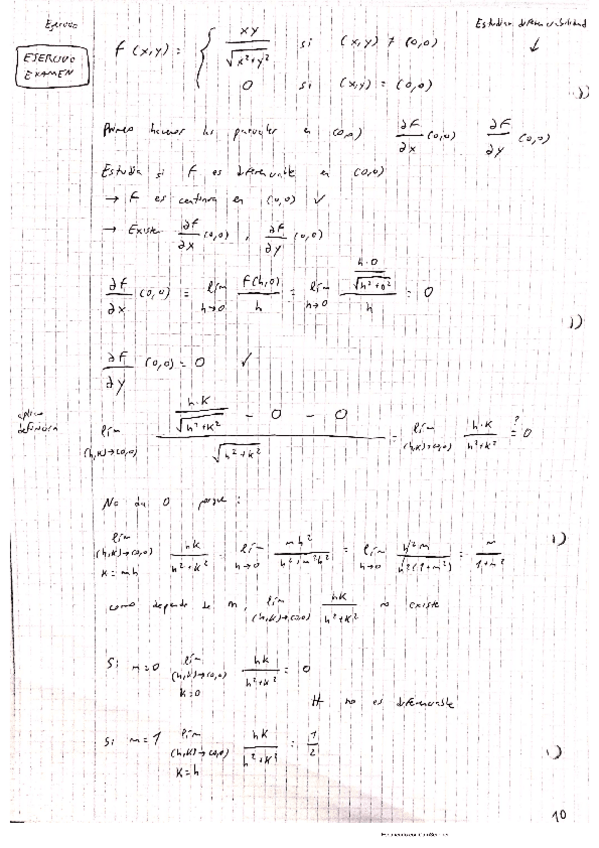 Ejercicio
Estudiar diferenciabilidad
EJERCICIO
EXAMEN
f(x,y) = { xy / √(x²+y²) si (x,y) ≠ (0,0)
0 si (x,y) = (0,0)
Primero hacemos las parciales en (0,0) ∂f/∂x (0,0) ∂f/∂y (0,0)
Estudia si f es diferenciable en (0,0)
→ f es continua en (0,0) ✓
→ Existen ∂f/∂x (0,0), ∂f/∂y (0,0)
∂f/∂x (0,0) = lím h→0 f(h,0)/h = lím h→0 (h·0/√(h²+0²))/h = 0
∂f/∂y (0,0) = 0 ✓
aplico
definición
lím (h,k)→(0,0) (h·k/√(h²+k²) - 0 - 0)/√(h²+k²) = lím (h,k)→(0,0) h·k/(h²+k²) =? 0
No da 0 porque:
lím (h,k)→(0,0) k=mh hk/(h²+k²) = lím h→0 mh²/(h²+m²h²) = lím h→0 h²m/(h²(1+m²)) = m/(1+m²)
como depende de m, lím (h,k)→(0,0) hk/(h²+k²) no existe
Si m=0 lím (h,k)→(0,0) k=0 hk/(h²+k²) = 0
no es diferenciable
Si m=1 lím (h,k)→(0,0) k=h hk/(h²+k²) = 1/2
10